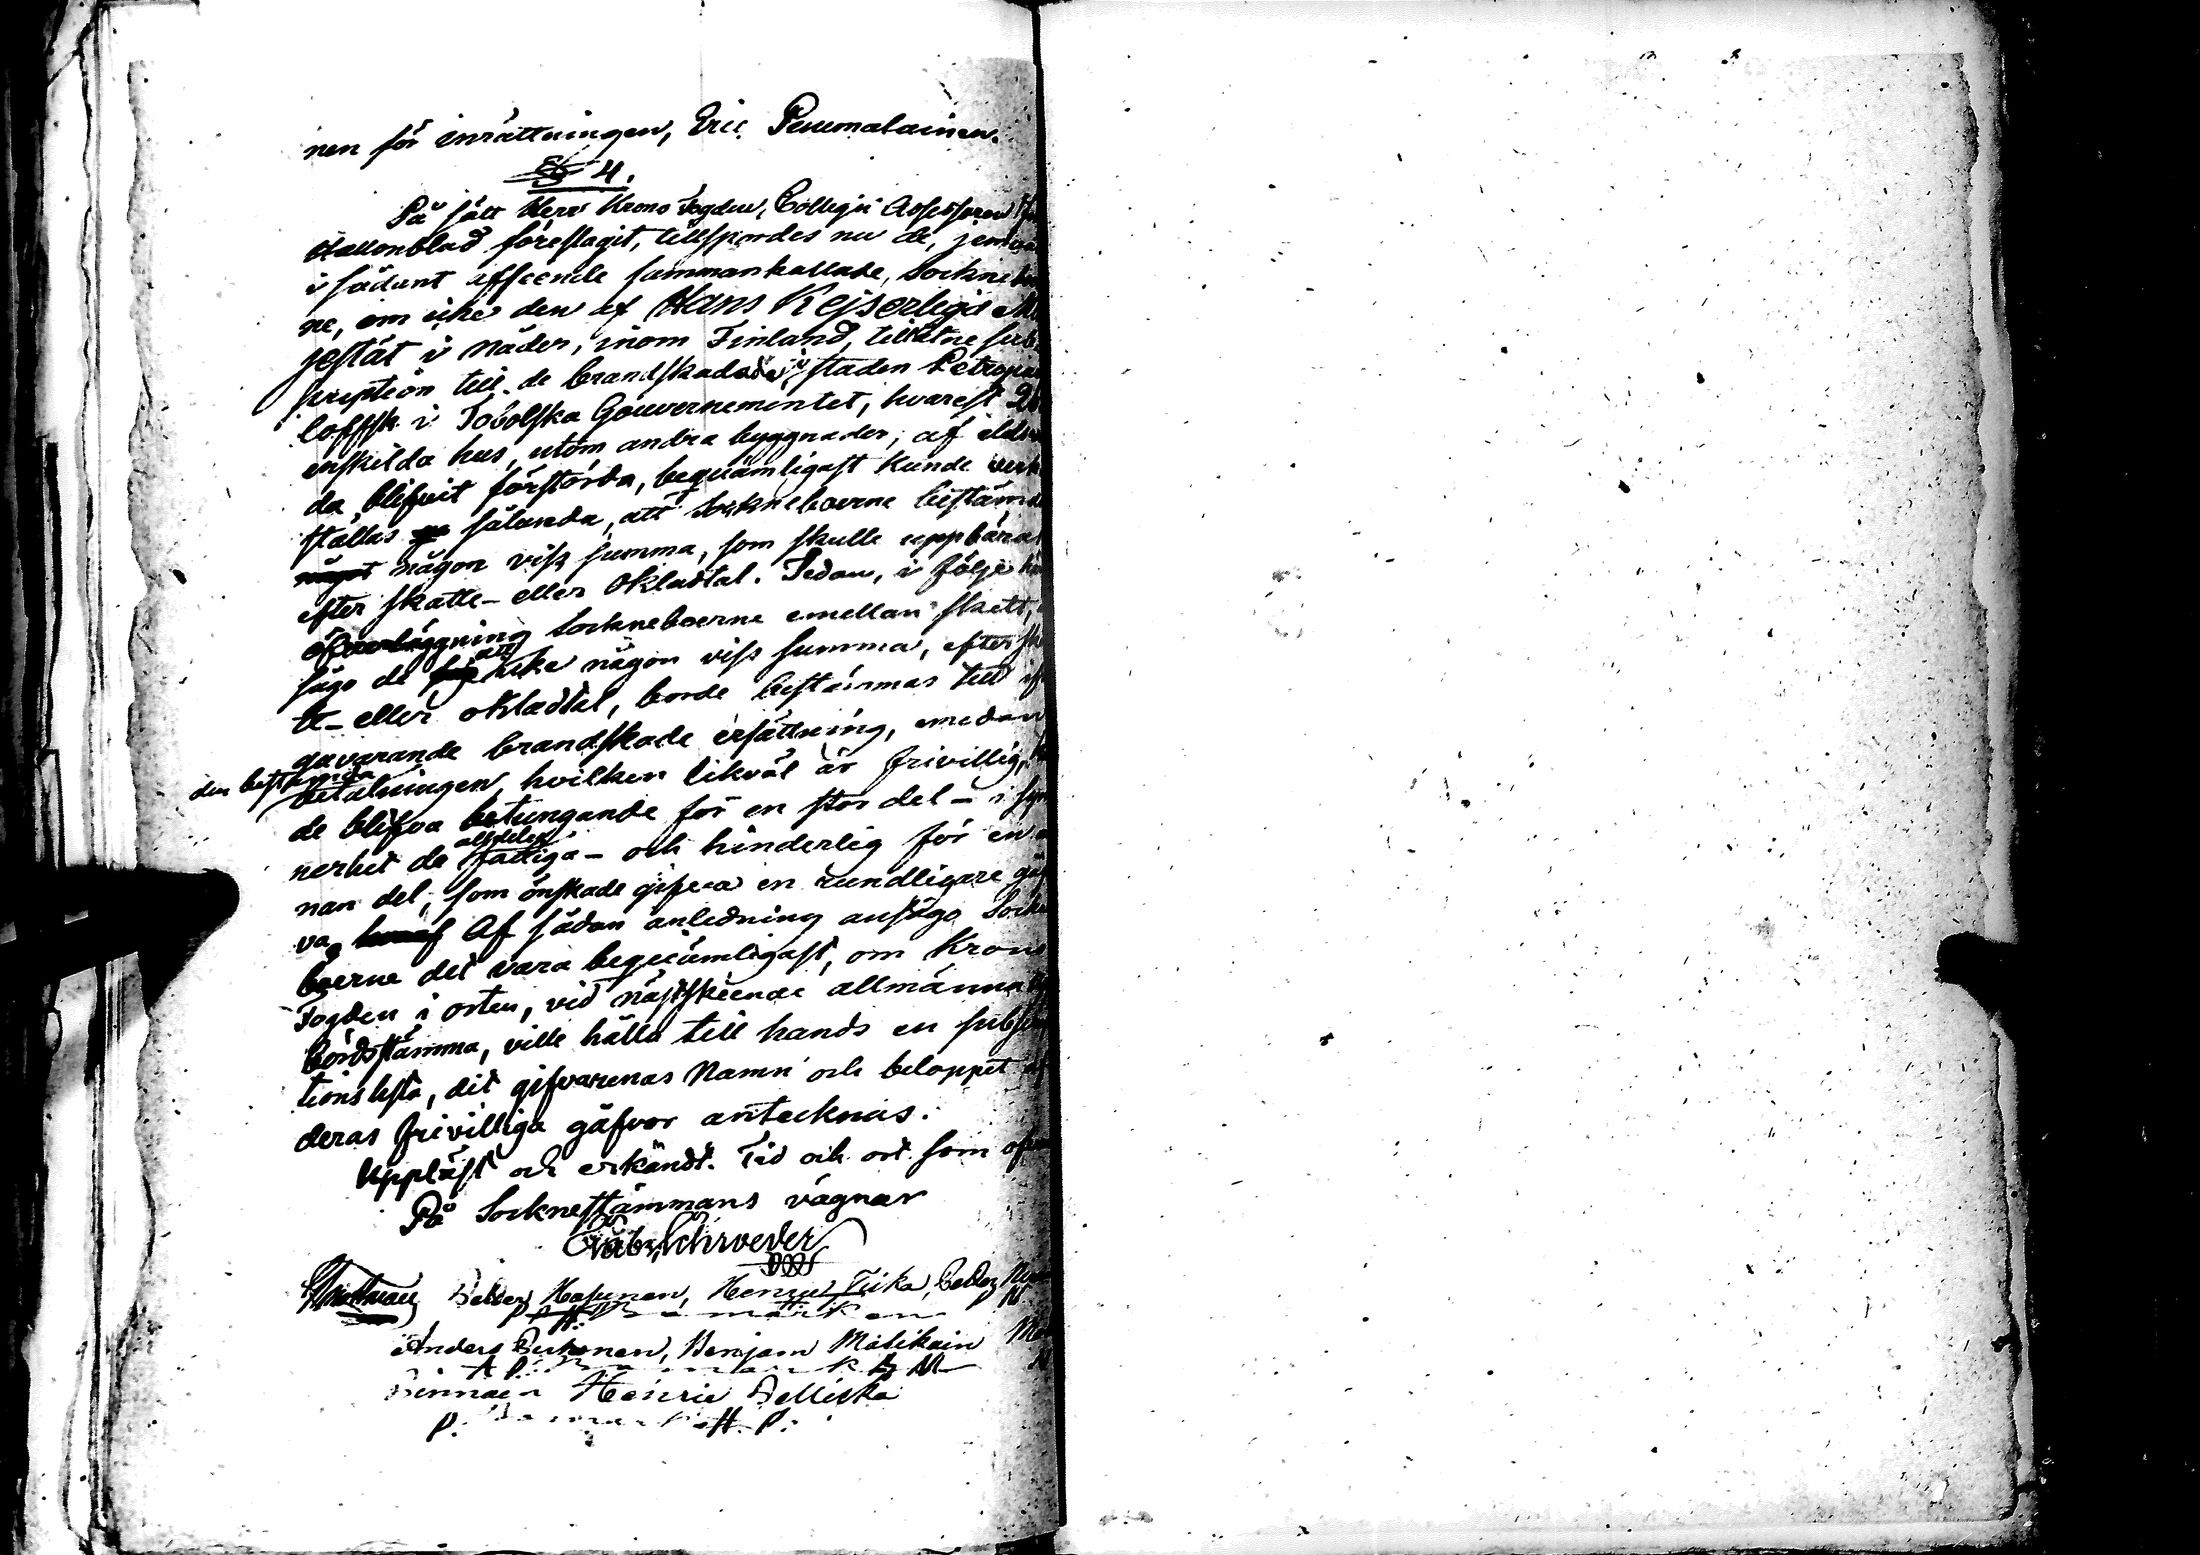 nen för inrättningen, Eric Pesumalainen.
§ 4.
På sätt Herr Krono Fogden, Collegii Assessoren
Hallonblad föreslagit, tillspordes nu de, jemväl
i sådant afseende sammankallade, Sockne
ne, om icke den af Hans Kejserliga Ma
jestät i Nåder, inom Finland, tillåtne sub
scription till de brandskadade i staden Petropa
loffsk i Tobolska Gouvernementet, hvarest
enskilda hus, utom andra byggnader, af
da, blifvit förstörda, beqvämligast kunde verk
ställas sålunda, att Socknеboerne bestämde
något någon viss summa, som skulle uppbäras
efter skatte- eller Okladtal. Sedan, i följe
öfverläggning Sockneboerne emellan skett,
sågo de att icke någon viss summa, efter
te- eller okladtal, borde bestämmas till
gavarande brandskade ersättning, emedan
den bestämda
betalningen, hvilken likväl är frivillig,
de blifva betungande för en stor del - i syn
alldeles
nerhet de fattiga - och hinderlig för en
nan del, som önskade gifva en rundligare gåf
va. Af sådan anledning ansågo Sockne
boerne det vara beqvämligast, om Krono
Fogden i orten, vid nästskeende allmänna
bördsstämma, ville hålla till hands en subscrip
tions lista, dit gifvarenas Namn och beloppet af
deras frivilliga gåfvor antecknas.
Uppläst och erkändt. Tid och ort som ofvan
På Socknestämmans vägnar
Schroeder
Petter Hasunen, Henric Tiika, Petter
Anders Pesonen, Benjam Matikain
Henric Pellicka
P. H. P.